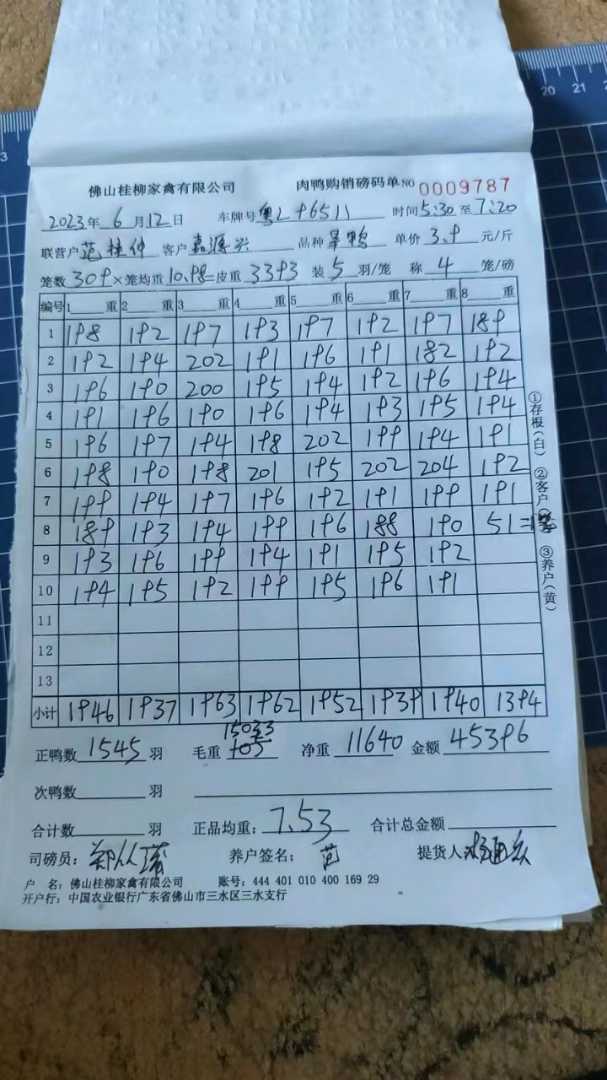 佛山桂柳家禽有限公司 肉鸭购销磅码单 NO 0009787
2023年 6月12日 车牌号 粤L96511 时间5:30至7:20
联营户 范桂仲 客户 嘉源兴 品种 旱鸭 单价 3.9 元/斤
笼数 309 ×笼均重 10.98=皮重 3393 装 5 羽/笼 称 4 笼/磅
编号 1 重 2 重 3 重 4 重 5 重 6 重 7 重 8 重
1 198 192 197 193 197 192 197 189
2 192 194 202 191 196 191 182 192
3 196 190 200 195 194 192 196 194
4 191 196 190 196 194 193 195 194
5 196 197 194 198 202 199 194 191
6 198 190 198 201 195 202 204 192
7 199 194 197 196 192 191 199 191
8 189 193 194 199 196 188 190 51=
9 193 196 199 194 191 195 192
10 194 195 192 199 195 196 191
11
12
13
小计 1946 1937 1963 1962 1952 1939 1940 1394
①存根(白) ②客户( ③养户(黄)
正鸭数 1545 羽 毛重 15033 净重 11640 金额 45396
次鸭数 羽
合计数 羽 正品均重: 7.53 合计总金额
司磅员: 养户签名: 范 提货人
户 名: 佛山桂柳家禽有限公司 账号: 444 401 010 400 169 29
开户行: 中国农业银行广东省佛山市三水区三水支行